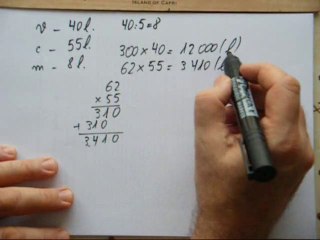 ISLAND OF CAPRI
v - 40 l.
c - 55 l.
m - 8 l.
40:5=8
300 × 40 = 12 000 (l)
62 × 55 = 3 410 (
62
× 55
310
+ 310
3410